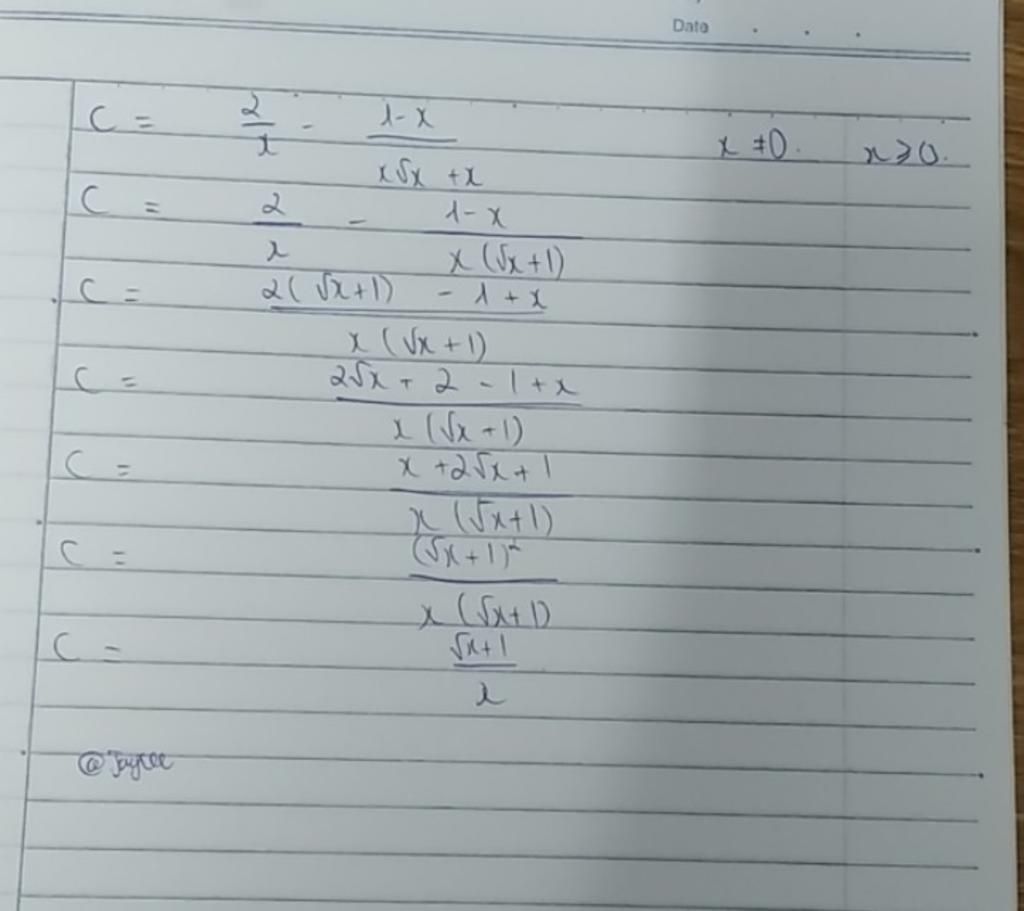 Date . . .
C = 2/x - (1-x)/(x√x + x) x ≠ 0. x ⩾ 0.
C = 2/x - (1-x)/(x(√x+1))
C = (2(√x+1) - 1 + x)/(x(√x+1))
C = (2√x + 2 - 1 + x)/(x(√x+1))
C = (x + 2√x + 1)/(x(√x+1))
C = (√x+1)²/(x(√x+1))
C = (√x+1)/x